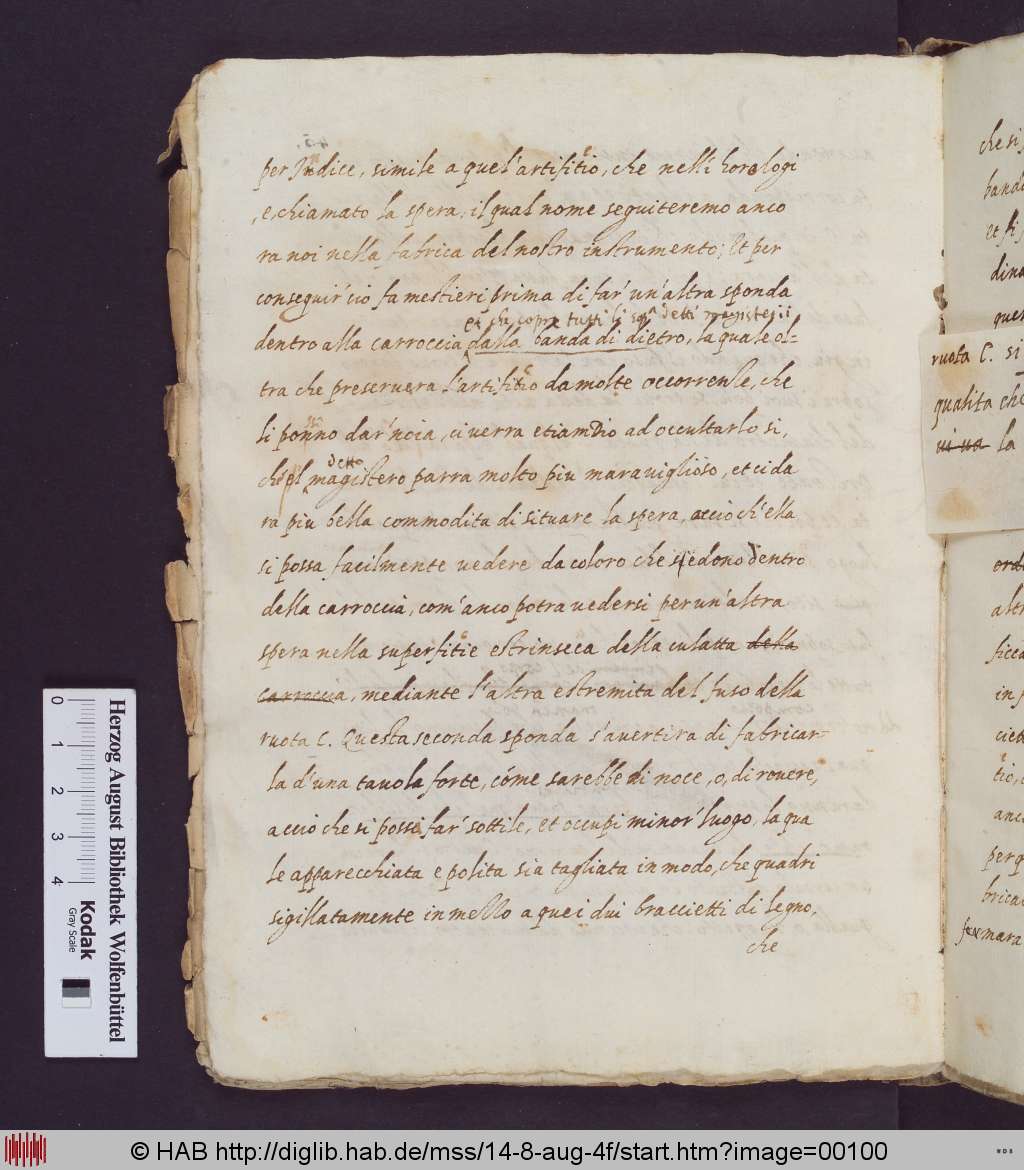 per Indice, simile a quel'artifitio, che nelli horologi
, e, chiamato la spera, il qual nome seguiteremo anco
ra noi nella fabrica del nostro instrumento; Et per
conseguir ciò fa mestieri prima di far' un'altra sponda
che copra tutti li detti magisterii
dentro alla carroccia dalla banda di dietro, la quale ol-
tra che preservera l'artifitio da molte occorrenze, che
li ponno dar' noia, ci verra etiamdio ad occultarlo si,
detto
che'l magistero parra molto piu maraviglioso, et ci da
ra piu bella commodita di situare la spera, acciò ch'ella
si possa facilmente vedere da coloro che siedono dentro
della carroccia, com'anco potra vedersi per un'altra
spera nella superfitie estrinseca della culatta della
carroccia, mediante l'altra estremita del fuso della
ruota C. Questa seconda sponda s'avertira di fabricar-
la d'una tavola forte, cóme sarebbe di noce, o, di rovere,
acciò che si possi far' sottile, et occupi minor' luogo, la qua
le apparecchiata e polita sia tagliata in modo, che quadri
sigillatamente in mezzo a quei dui braccietti di legno,
che
che si
et si
ruota C. si
qualita che
la
altr
ficca
in
anco
perq
brica
mara
Herzog August Bibliothek Wolfenbüttel
0 1 2 3 4
Kodak
Gray Scale
© HAB http://diglib.hab.de/mss/14-8-aug-4f/start.htm?image=00100